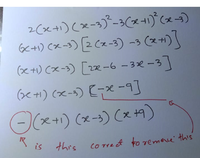 2(x+1)(x-3)²-3(x+1)²(x-3)
(x+1)(x-3)[2(x-3)-3(x+1)]
(x+1)(x-3)[2x-6-3x-3]
(x+1)(x-3)[-x-9]
-(x+1)(x-3)(x+9)
is this correct to remove this